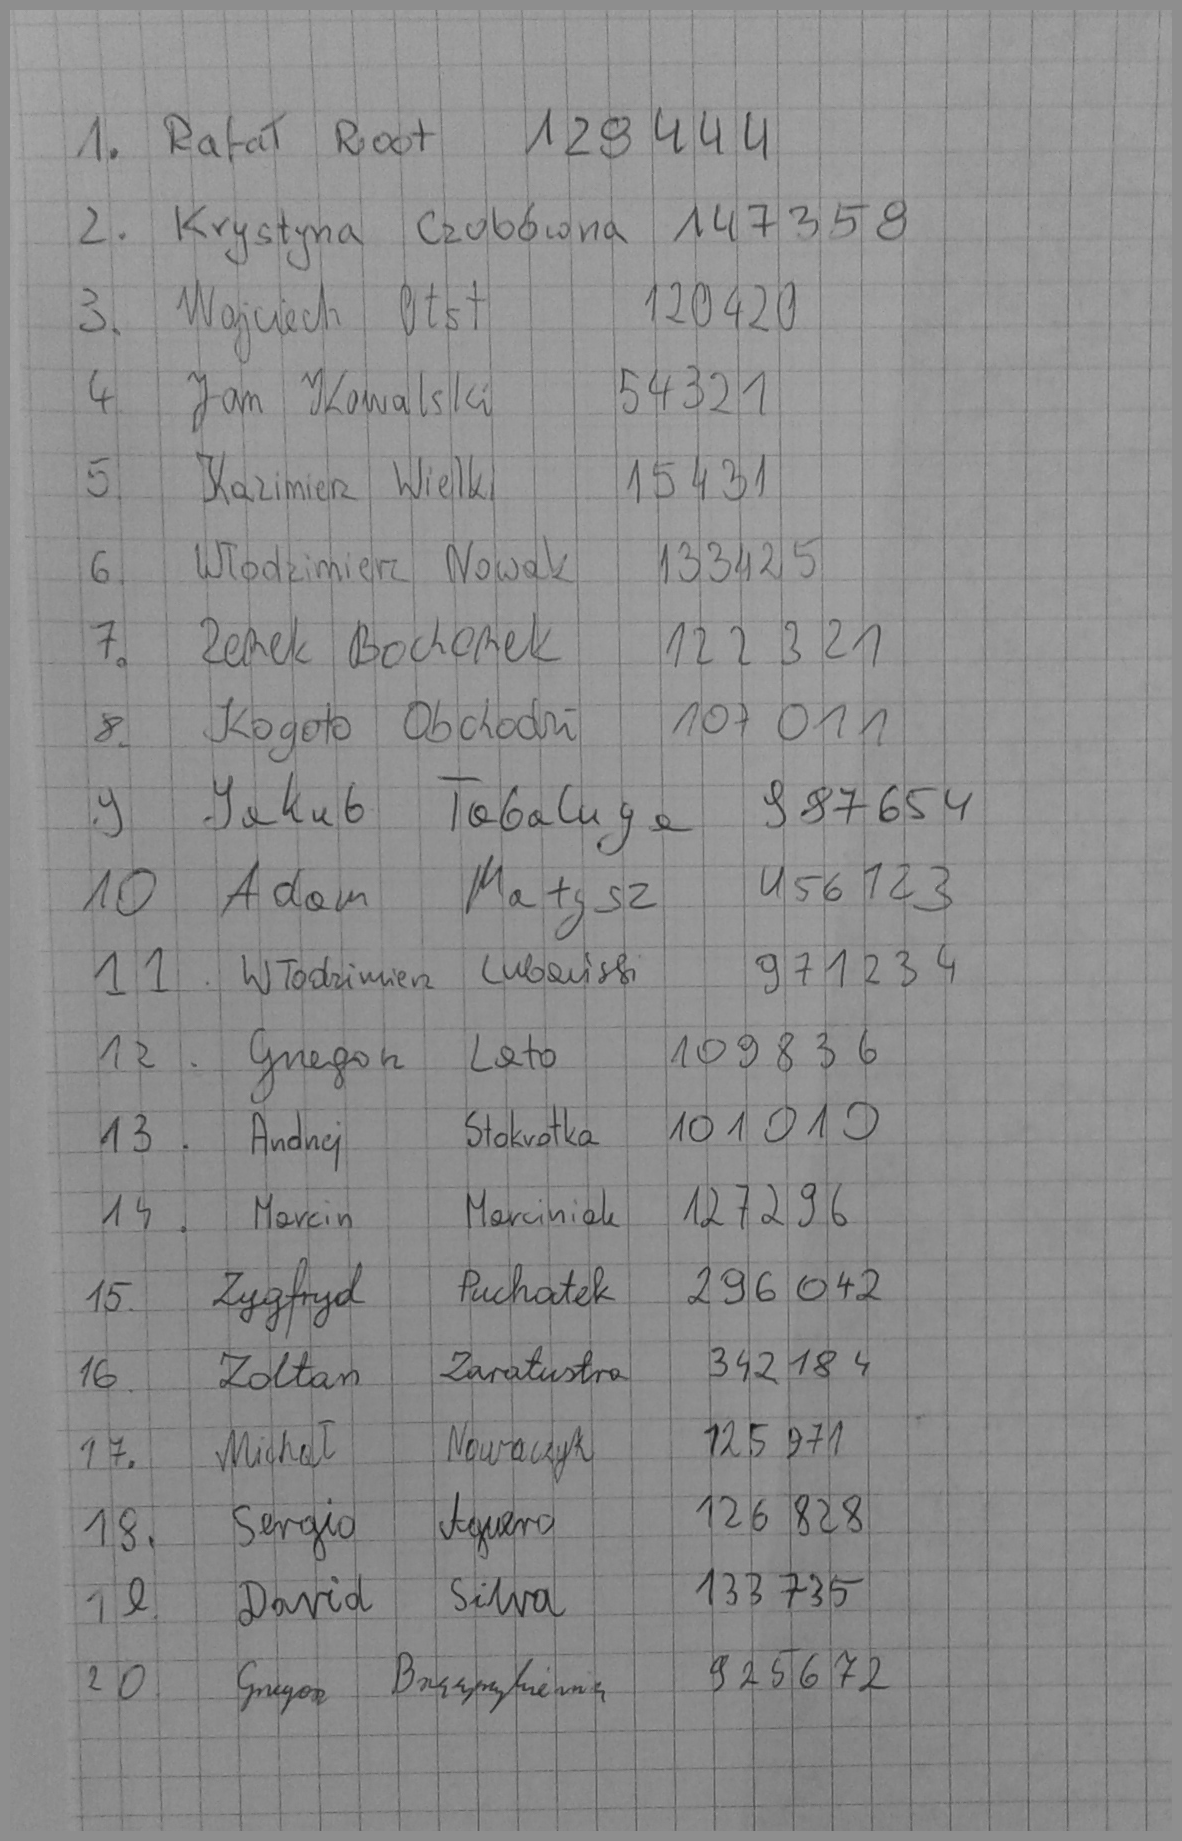 1. Rafał Root 129444
2. Krystyna Czubówna 147359
3. Wojciech Otst 120420
4 Jan Kowalski 54321
5. Kazimierz Wielki 15431
6. Włodzimierz Nowak 133425
7. Zenek Bochenek 122321
8. Kogoto Obchodzi 107011
9 Jakub Tabaluga 987654
10 Adam Małysz 456123
11. Włodzimierz 971234
12. Grzegorz Lato 109836
13. Andrzej Stokrotka 101010
14. Marcin Marciniak 127296
15. Zygfryd Puchatek 296042
16. Zoltan Zaratustra 342184
17. Michał Nowaczyk 125971
18. Sergio Aguero 126828
19. David Silva 133735
20 Grzegorz 925672